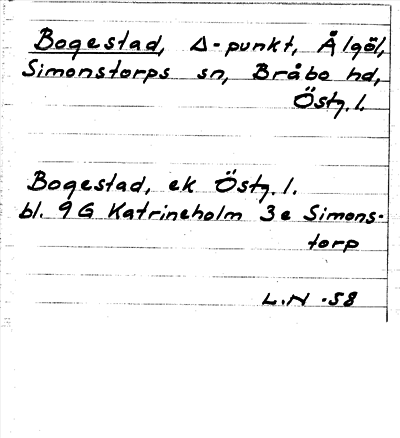 Bogestad, Δ-punkt, Ålgöl,
Simonstorps sn, Bråbo hd,
Östg. l.
Bogestad, ek Östg. l.
bl. 9 G Katrineholm 3e Simons-
torp
L.N -58